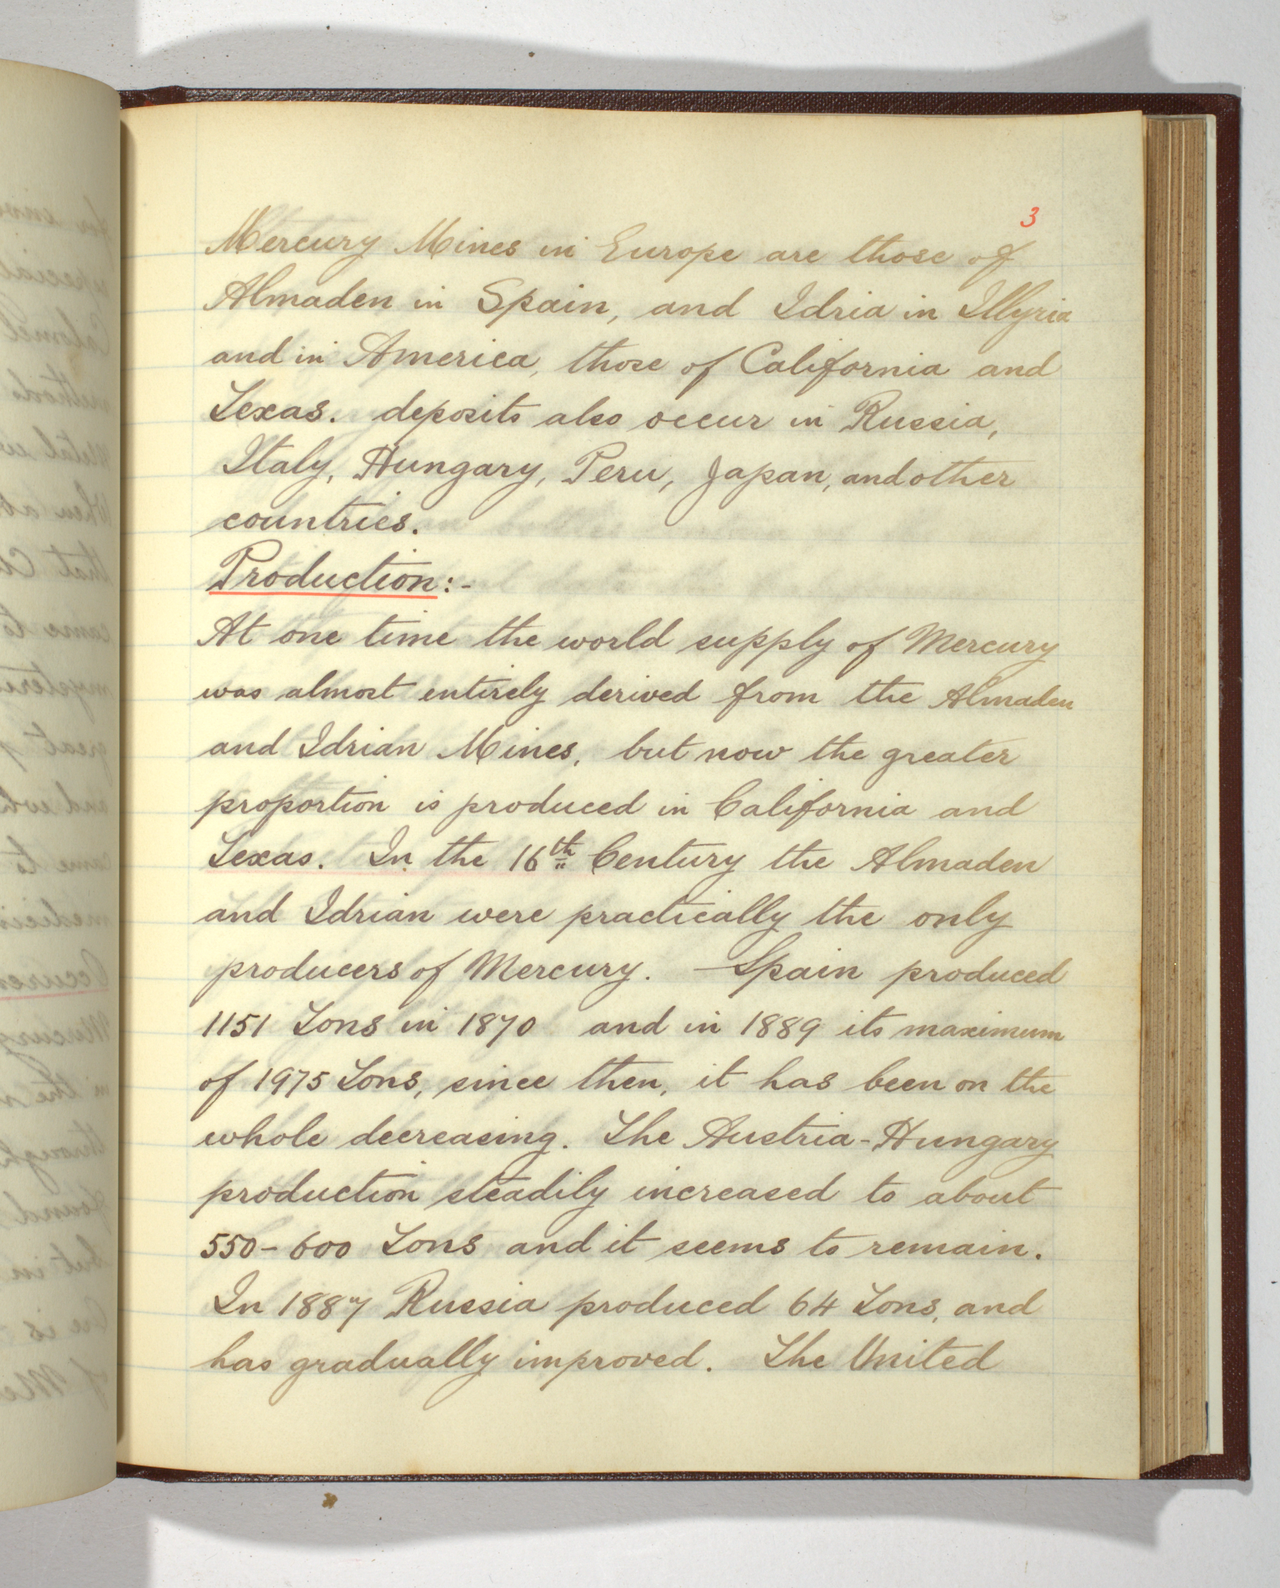 3
Mercury Mines in Europe are those of
Almaden in Spain, and Idria in Illyria
and in America, those of California and
Texas. deposits also occur in Russia,
Italy, Hungary, Peru, Japan, and other
countries.
Production:-
At one time the world supply of Mercury
was almost entirely derived from the Almaden
and Idrian Mines, but now the greater
proportion is produced in California and
Texas. In the 16th Century the Almaden
and Idrian were practically the only
producers of Mercury. Spain produced
1151 Tons in 1870 and in 1889 its maximum
of 1975 Tons, since then, it has been on the
whole decreasing. The Austria-Hungary
production steadily increased to about
550-600 Tons and it seems to remain.
In 1887 Russia produced 64 Tons, and
has gradually improved. The United